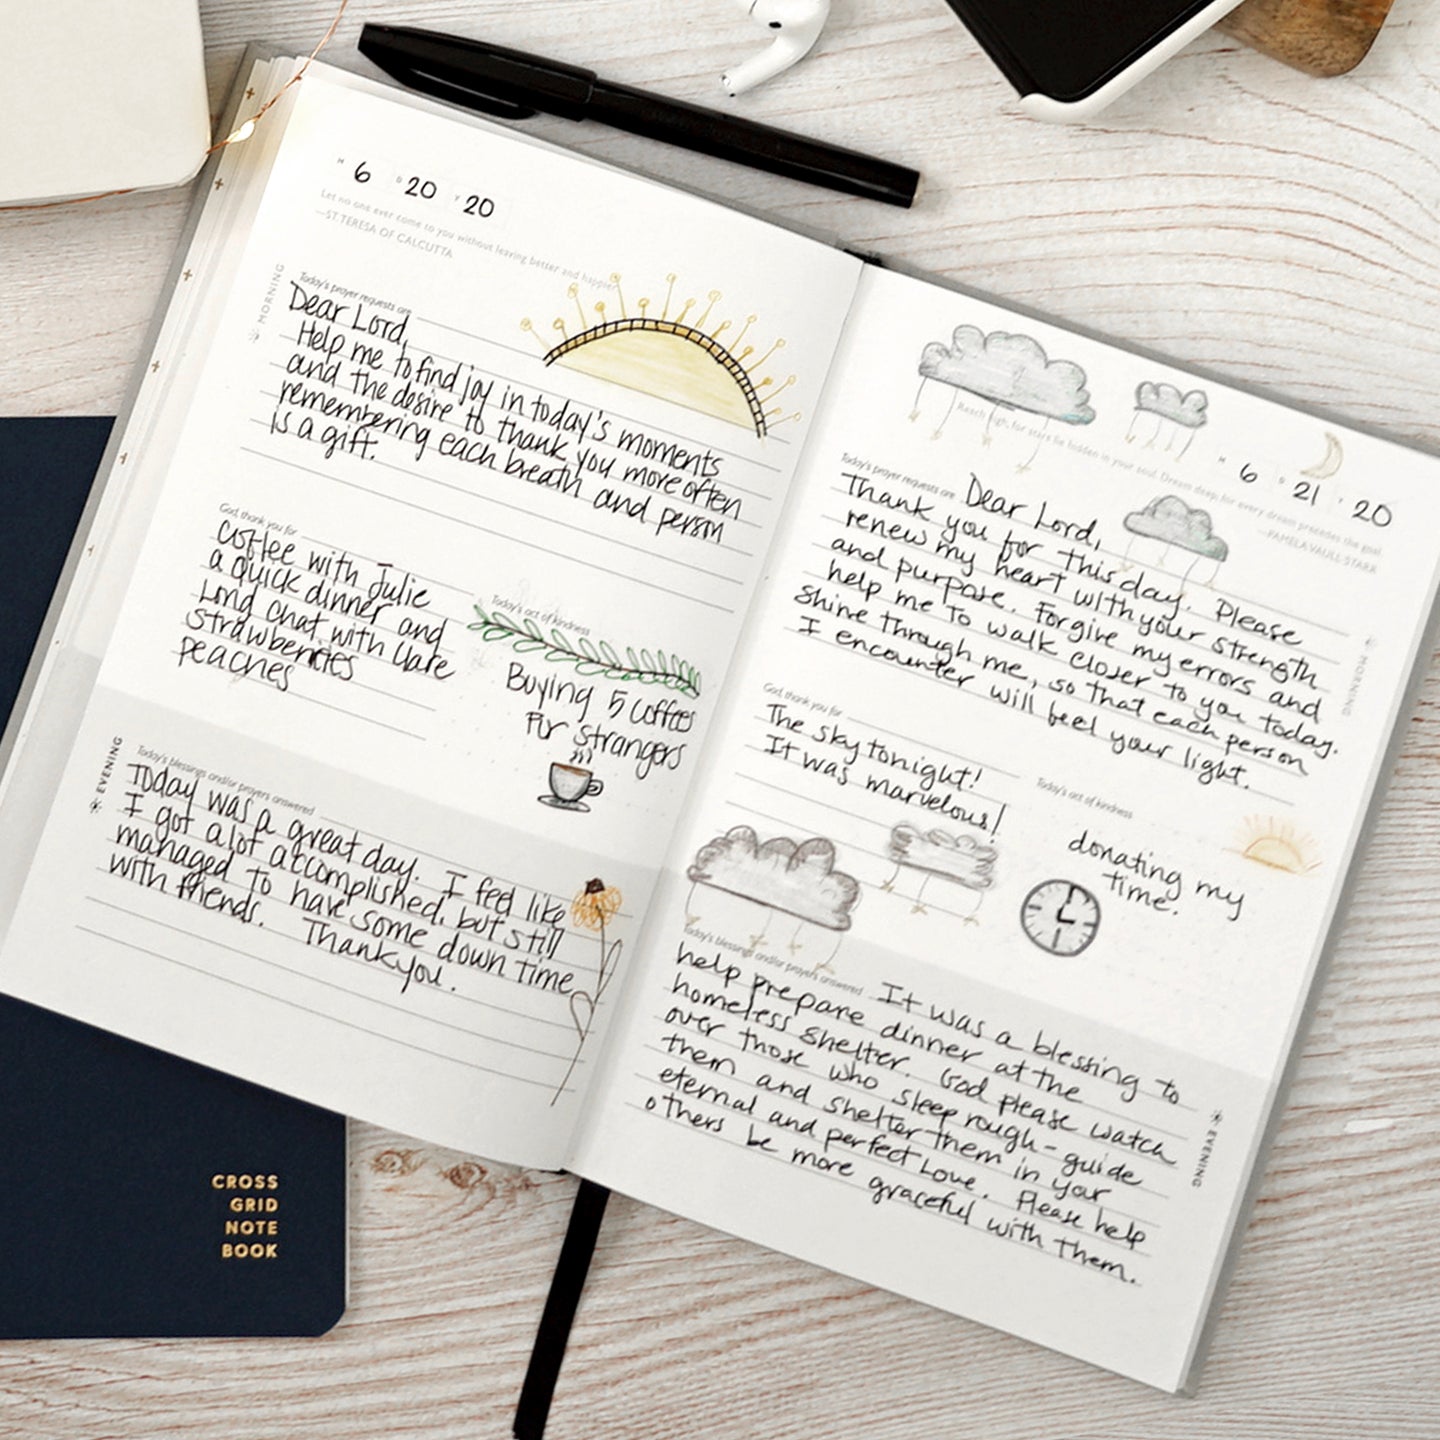 M 6 D 20 Y 20
Let no one ever come to you without leaving better and happier.
—ST. TERESA OF CALCUTTA
MORNING
Today's prayer requests are
Dear Lord,
Help me to find joy in today's moments
and the desire to thank you more often
remembering each breath and person
is a gift.
God, thank you for
coffee with Julie
a quick dinner and
Long chat with Clare
strawberries
peaches
Today's act of kindness
Buying 5 coffees
For strangers
EVENING
Today's blessings and/or prayers answered
Today was a great day. I feel like
I got a lot accomplished, but still
managed to have some down time
with friends. Thank you.
M 6 D 21 Y 20
Reach high, for stars lie hidden in your soul. Dream deep, for every dream precedes the goal.
—PAMELA VAULL STARR
MORNING
Today's prayer requests are
Dear Lord,
Thank you for this day. Please
renew my heart with your strength
and purpose. Forgive my errors and
help me to walk closer to you today.
Shine through me, so that each person
I encounter will feel your light.
God, thank you for
The sky tonight!
It was marvelous!
Today's act of kindness
donating my
time.
EVENING
Today's blessings and/or prayers answered
It was a blessing to
help prepare dinner at the
homeless shelter. God please watch
over those who sleep rough - guide
them and shelter them in your
eternal and perfect Love. Please help
others be more graceful with them.
CROSS
GRID
NOTE
BOOK